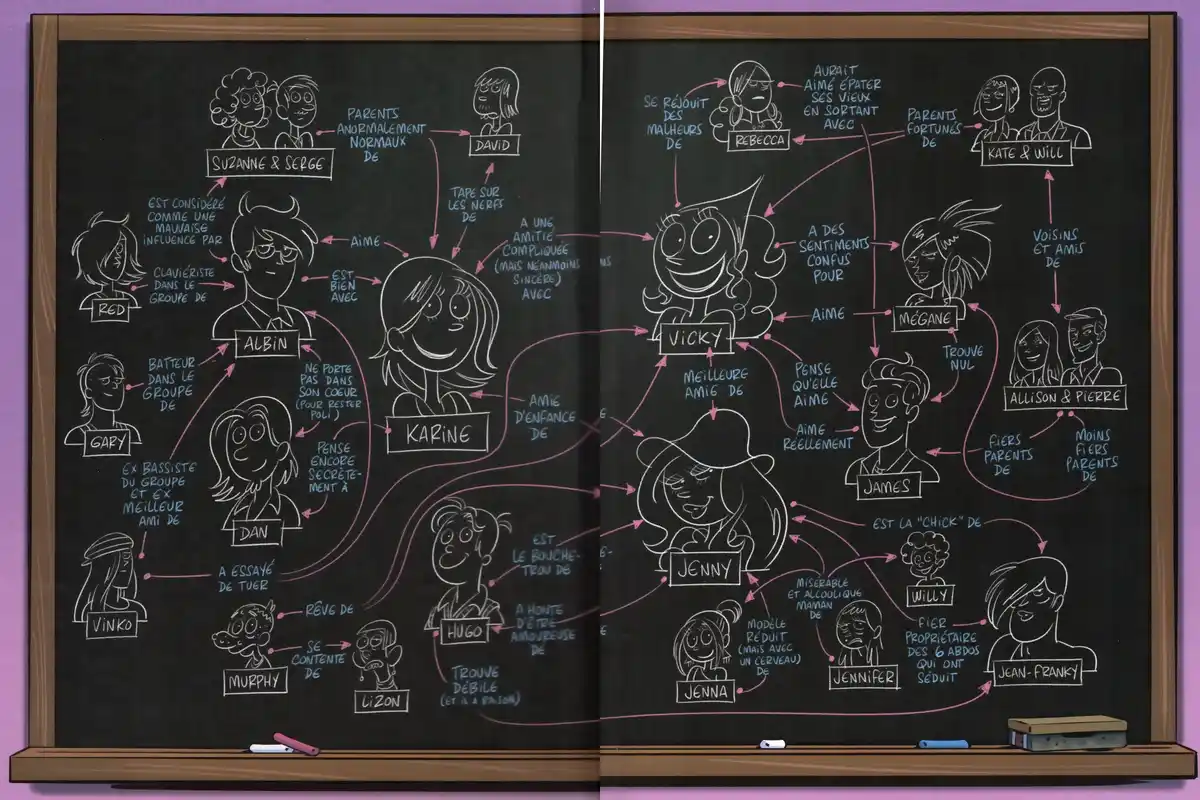 SUZANNE & SERGE
PARENTS
ANORMALEMENT
NORMAUX
DE
DAVID
SE RÉJOUIT
DES
MALHEURS
DE
REBECCA
AURAIT
AIMÉ ÉPATER
SES VIEUX
EN SORTANT
AVEC
PARENTS
FORTUNÉS
DE
KATE & WILL
EST CONSIDÉRÉ
COMME UNE
MAUVAISE
INFLUENCE PAR
TAPE SUR
LES NERFS
DE
AIME
A UNE
AMITIÉ
COMPLIQUÉE
(MAIS NÉANMOINS
SINCÈRE)
AVEC
A DES
SENTIMENTS
CONFUS
POUR
VOISINS
ET AMIS
DE
RED
CLAVIÉRISTE
DANS LE
GROUPE DE
EST
BIEN
AVEC
ALBIN
VICKY
AIME
MÉGANE
BATTEUR
DANS LE
GROUPE
DE
GARY
NE PORTE
PAS DANS
SON COEUR
(POUR RESTER
POLI)
KARINE
AMIE
D'ENFANCE
DE
MEILLEURE
AMIE DE
PENSE
QU'ELLE
AIME
TROUVE
NUL
ALLISON & PIERRE
AIME
RÉELLEMENT
JAMES
FIERS
PARENTS
DE
MOINS
FIERS
PARENTS
DE
EX BASSISTE
DU GROUPE
ET EX
MEILLEUR
AMI DE
PENSE
ENCORE
SECRÈTE-
MENT À
DAN
EST LA "CHICK" DE
VINKO
A ESSAYÉ
DE TUER
EST
LE BOUCHE-
TROU DE
JENNY
WILLY
RÊVE DE
HUGO
A HONTE
D'ÊTRE
AMOUREUSE
DE
MISÉRABLE
ET ALCOOLIQUE
MAMAN
DE
MURPHY
SE
CONTENTE
DE
LIZON
TROUVE
DÉBILE
(ET IL A RAISON)
JENNA
MODÈLE
RÉDUIT
(MAIS AVEC
UN CERVEAU)
DE
JENNIFER
FIER
PROPRIÉTAIRE
DES 6 ABDOS
QUI ONT
SÉDUIT
JEAN-FRANKY